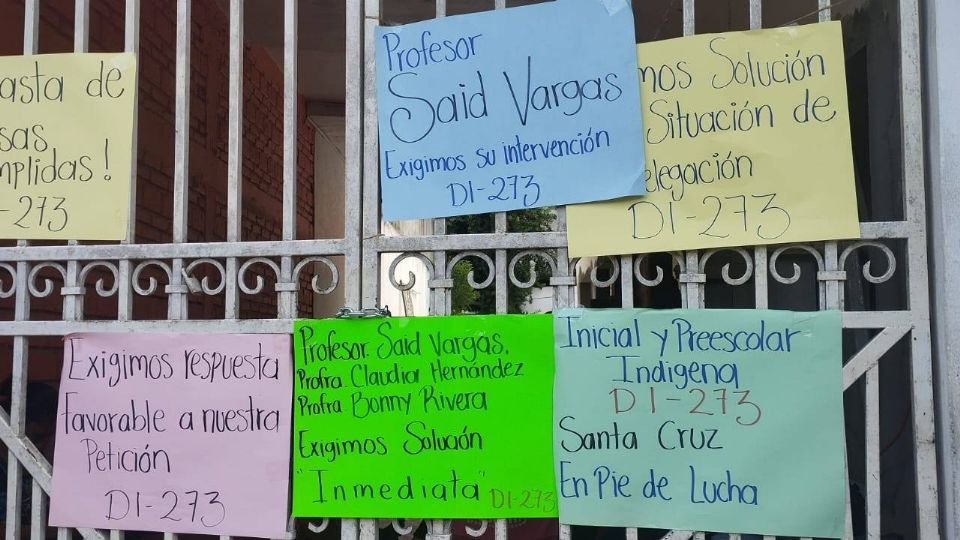 asta de
sas
mplidas!
-273
Profesor
Said Vargas
Exigimos su intervención
DI-273
mos Solución
Situación de
elegación
DI-273
Exigimos respuesta
Favorable a nuestra
Petición
DI-273
Profesor. Said Vargas,
Profra. Claudia Hernández
Profra. Bonny Rivera
Exigimos Solución
"Inmediata" DI-273
Inicial y Preescolar
Indigena
DI-273
Santa Cruz
En Pie de Lucha